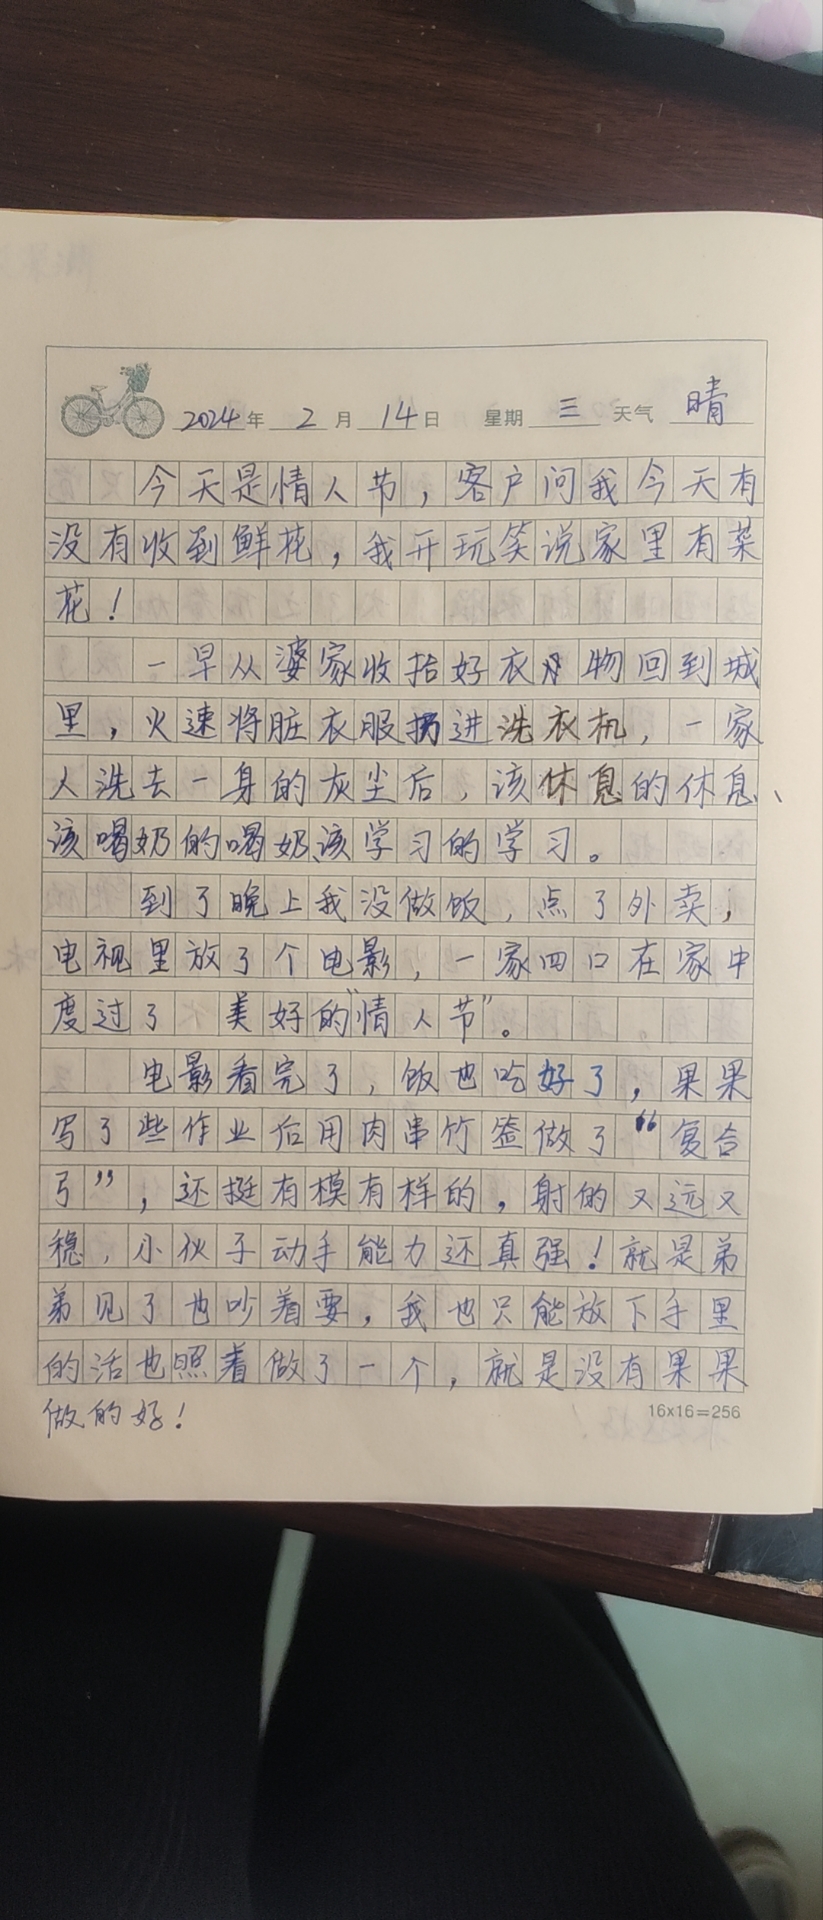 2024年 2 月 14日 星期 三 天气 晴
今天是情人节，客户问我今天有
没有收到鲜花，我开玩笑说家里有菜
花！
一早从婆家收拾好衣物回到城
里，火速将脏衣服扔进洗衣机，一家
人洗去一身的灰尘后，该休息的休息、
该喝奶的喝奶、该学习的学习。
到了晚上我没做饭，点了外卖，
电视里放了个电影，一家四口在家中
度过了美好的"情人节"。
电影看完了，饭也吃好了，果果
写了些作业后用肉串竹签做了“复合
弓”，还挺有模有样的，射的又远又
稳，小伙子动手能力还真强！就是弟
弟见了也吵着要，我也只能放下手里
的活也照着做了一个，就是没有果果
做的好！
16x16=256